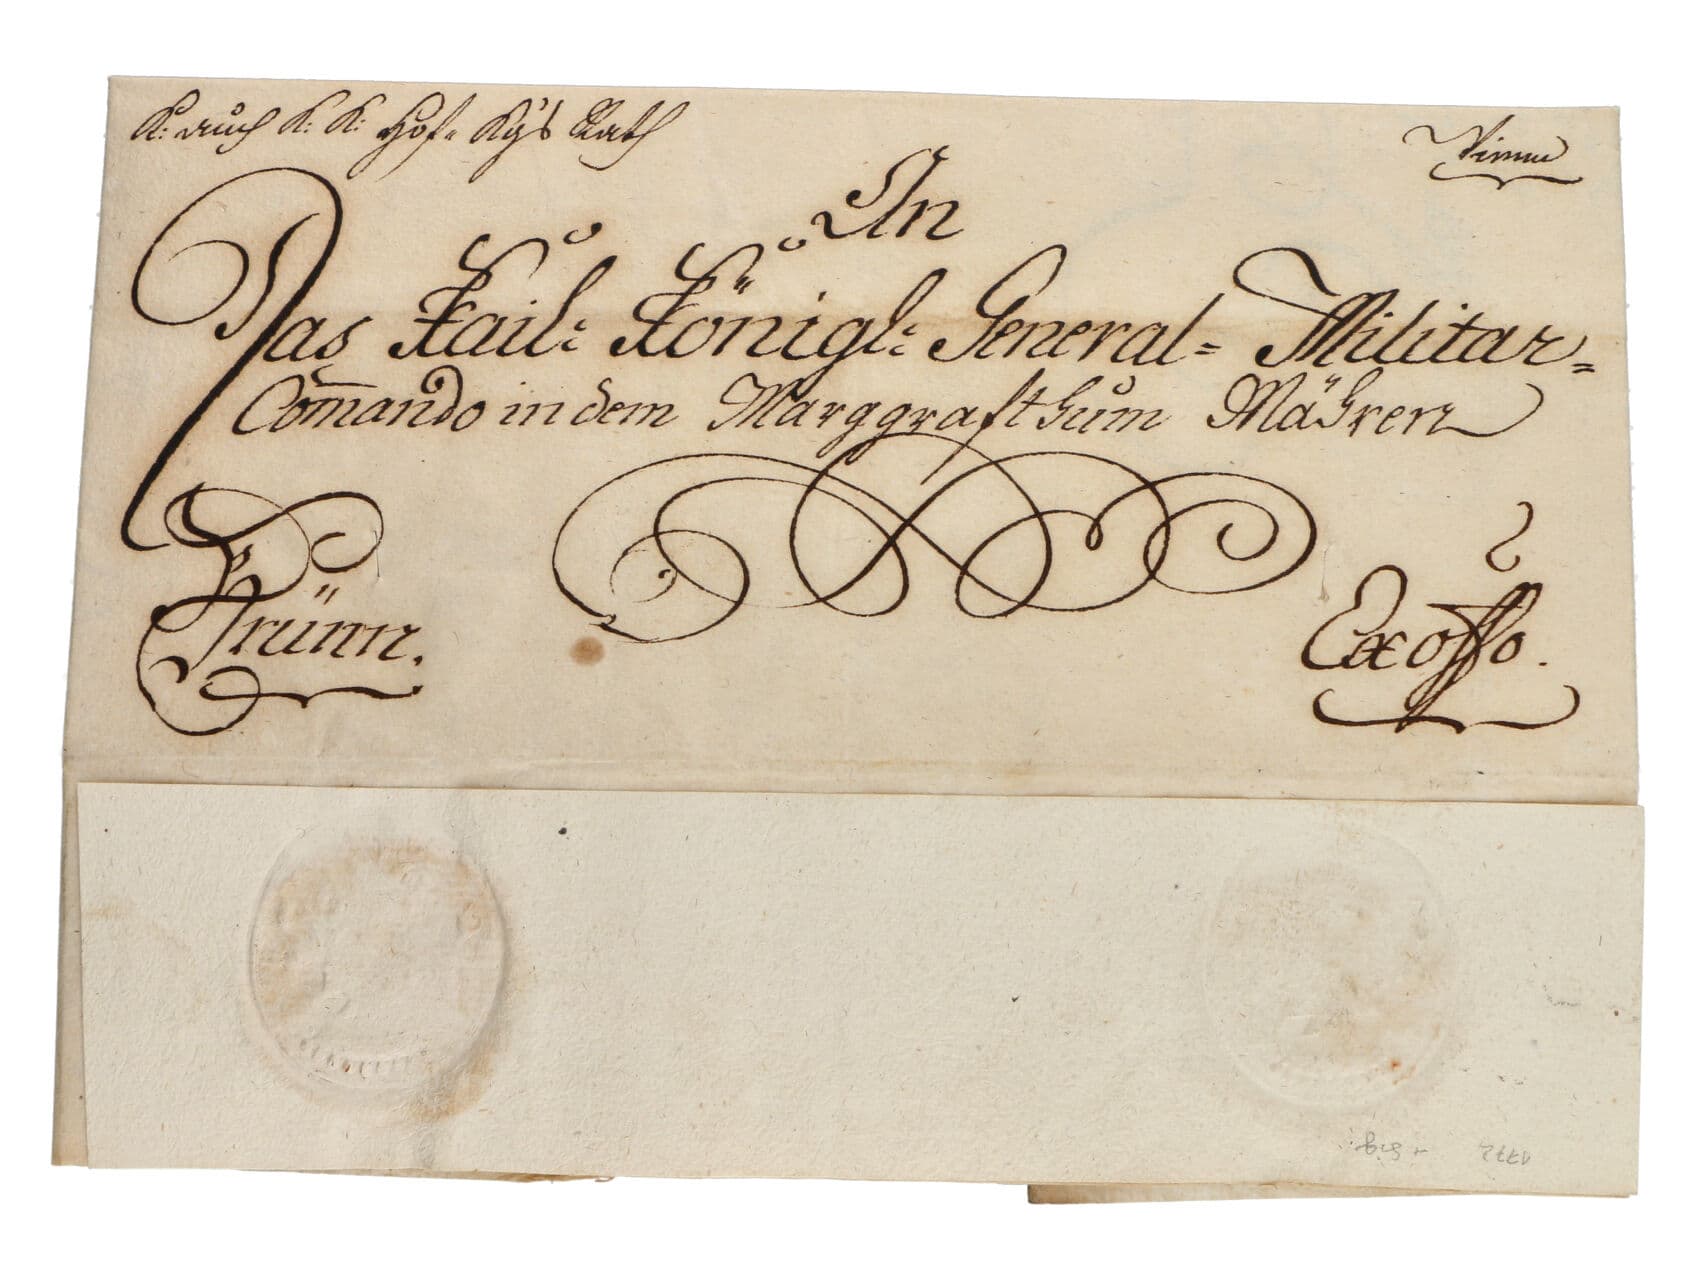 K: auch K: K: Hof= Kgs Rath
Vienne
An
Das Kail: Königl: General= Militar=
Commando in dem Marggrafthum Mähren
Brünn.
Ex offo.
+ Sieg
1772